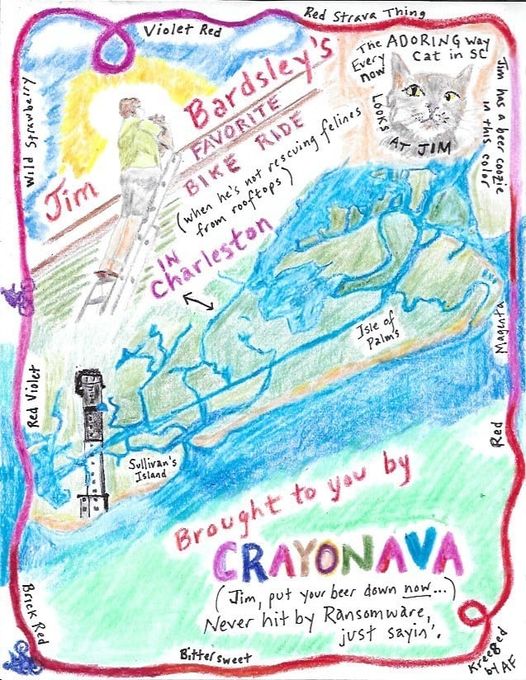 Red Strava Thing
Violet Red
Wild Strawberry
Jim Bardsley's
FAVORITE
BIKE RIDE
(when he's not rescuing felines
from rooftops)
IN
Charleston
The ADORING way
Every Cat in SC
now
LOOKS
AT JIM
Jim has a beer coozie
in this color
Isle of
Palms
Magenta
Red Violet
Sullivan's
Island
Red
Brought to you by
CRAYONAVA
(Jim, put your beer down now...)
Never hit by Ransomware,
just sayin'.
Brick Red
Bittersweet
Kreeged
by AF